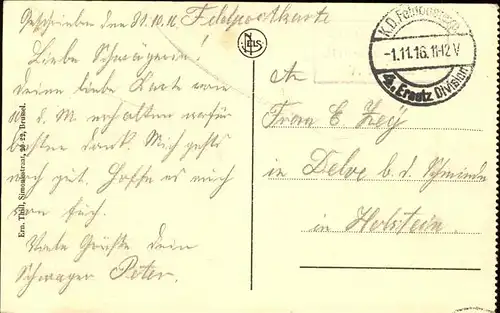 Geschrieben den 31.10.16 Feldpostkarte
Liebe Schwägerin!
Deine liebe Karte vom
d. M. erhalten wofür
besten Dank. Mir gehts
noch gut. Hoffe es auch
von Euch.
Viele Grüße dein
Schwager Peter.
Ern. Thill, Simonisstraat, 20-22, Brussel.
NELS
K.D. Feldpostexp.
-1.11.16. 11-12 V
4. Ersatz Division
An
Frau E. Ley
in Delve b. d.
in Holstein.